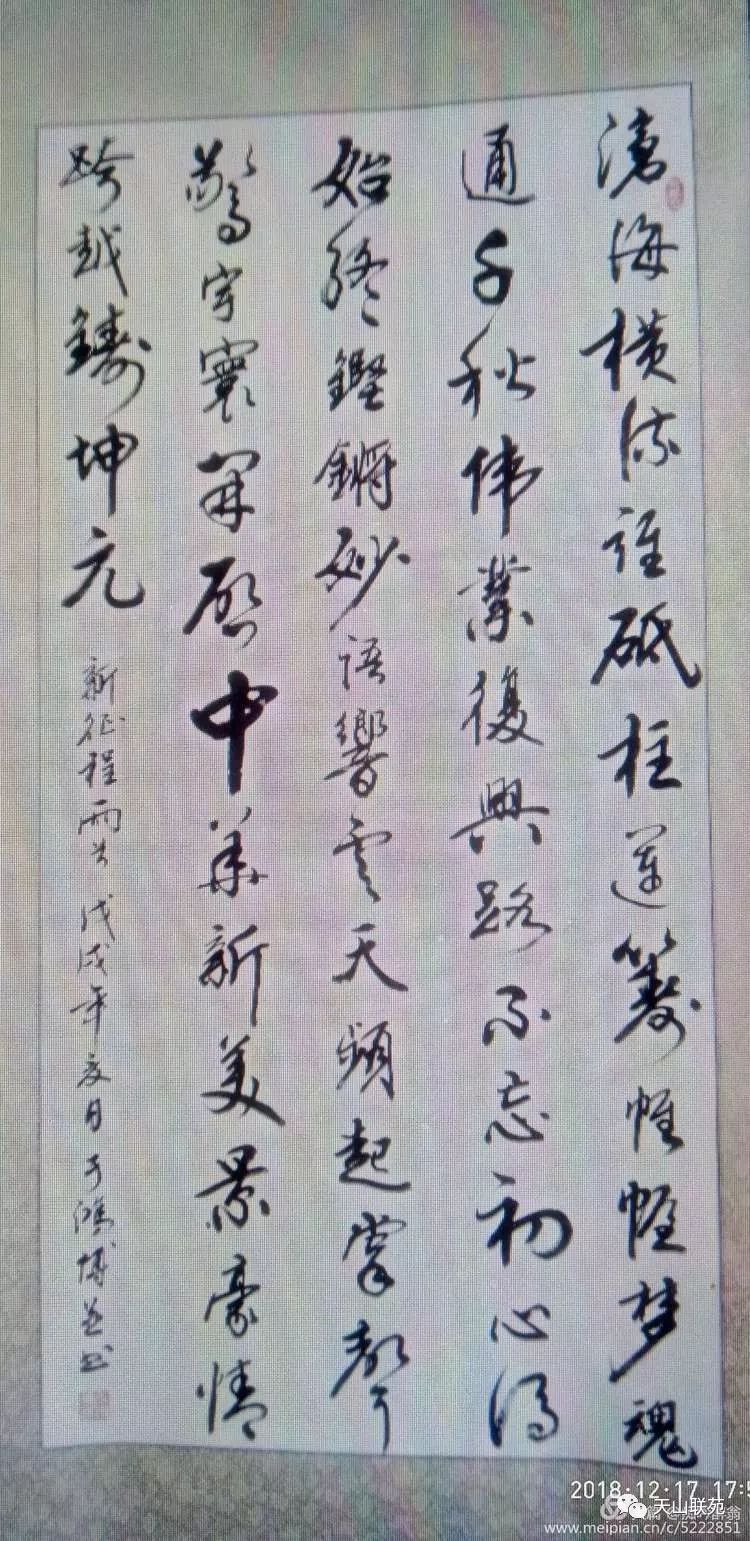 滄海横流誰砥柱運籌帷幄梦魂
通千秋伟業復興路不忘初心得
始終鏗鏘妙語響雲天頻起掌聲
驚宇寰開啟中華新美景豪情
跨越鑄坤元
新征程 戊戌年夏日于鴻博並书
2018·12·17 17:5
天山联苑
www.meipian.cn/c/5222851